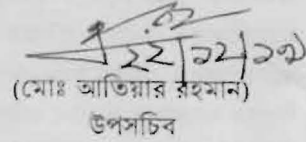 ২২|১২|১৩
(মোঃ আতিয়ার রহমান)
উপসচিব